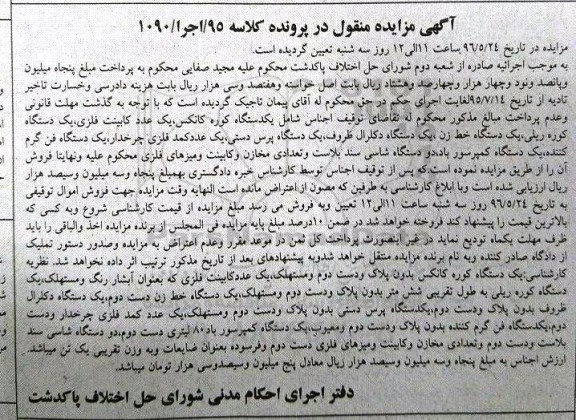 آگهی مزایده منقول در پرونده کلاسه ۹۵/اجرا/۱۰۹۰
مزایده در تاریخ ۹۶/۵/۲۴ ساعت ۱۱الی۱۲ روز سه شنبه تعیین گردیده است.
به موجب اجرائیه صادره از شعبه دوم شورای حل اختلاف پاکدشت محکوم علیه مجید صفایی محکوم به پرداخت مبلغ پنجاه میلیون
وپانصد ونود وچهار هزار وچهارصد وهشتاد ریال بابت اصل خواسته وهفتصد وسی هزار ریال بابت هزینه دادرسی وخسارت تاخیر
تادیه از تاریخ ۹۵/۷/۱۴لغایت اجرای حکم در حق محکوم له آقای پیمان تاجیک گردیده است که با توجه به گذشت مهلت قانونی
وعدم پرداخت مبالغ مذکور محکوم له تقاضای توقیف اجناس شامل یکدستگاه کوره کانکس،یک عدد کابینت فلزی،یک دستگاه
کوره ریلی،یک دستگاه خط زن ،یک دستگاه دکلرال ظروف،یک دستگاه پرس دستی،یک عددکمد فلزی چرخدار،یک دستگاه فن گرم
کننده،یک دستگاه کمپرسور باد،دو دستگاه شاسی سند بلاست وتعدادی مخازن وکابینت ومیزهای فلزی محکوم علیه ونهایتا فروش
آن را از طریق مزایده نموده است،که پس از توقیف اجناس توسط کارشناس خبره دادگستری بهمبلغ پنجاه وسه میلیون وسیصد هزار
ریال ارزیابی شده است وبا ابلاغ کارشناسی به طرفین که مصون از اعتراض مانده است النهایه وقت مزایده جهت فروش اموال توقیفی
به تاریخ ۹۶/۵/۲۴ روز سه شنبه ساعت ۱۱الی۱۲ تعیین وبه فروش می رسد مبلغ مزایده از قیمت کارشناسی شروع وبه کسی که
بالاترین قیمت را پیشنهاد کند فروخته خواهد شد در ضمن ۱۰درصد مبلغ پایه مزایده فی المجلس از برنده مزایده اخذ والباقی را باید
ظرف مهلت یکماه تودیع نماید در غیر اینصورت پرداخت کل ثمن در موعد مقرر وعدم اعتراض به مزایده وصدور دستور تملیک
از دادگاه صادر کننده وبه نام برنده مزایده منتقل خواهد شدوبه پیشنهادهای بعد از تاریخ مذکور ترتیب اثر داده نخواهد شد. نظریه
کارشناسی:یک دستگاه کوره کانکس بدون پلاک ودست دوم ومستهلک،یک عددکابینت فلزی که بعنوان آبشار رنگ ومستهلک،یک
دستگاه کوره ریلی به طول تقریبی شش متر بدون پلاک ودست دوم ومستهلک،یک دستگاه خط زن دست دوم،یک دستگاه دکلرال
ظروف بدون پلاک ودست دوم،یکدستگاه پرس دستی بدون پلاک ودست دوم ومستهلک،یک عدد کمد فلزی چرخدار ودست
دوم،یکدستگاه فن گرم کننده بدون پلاک ودست دوم ومعیوب،یک دستگاه کمپرسور باد۸۰ لیتری دست دوم،دو دستگاه شاسی سند
بلاست ودست دوم وتعدادی مخازن وکابینت ومیزهای فلزی دست دوم وفرسوده بعنوان ضایعات وبه وزن تقریبی یک تن میباشد.
ارزش اجناس به مبلغ پنجاه وسه میلیون وسیصد هزار ریال معادل پنج میلیون وسیصدوسی هزار تومان میباشد.
دفتر اجرای احکام مدنی شورای حل اختلاف پاکدشت